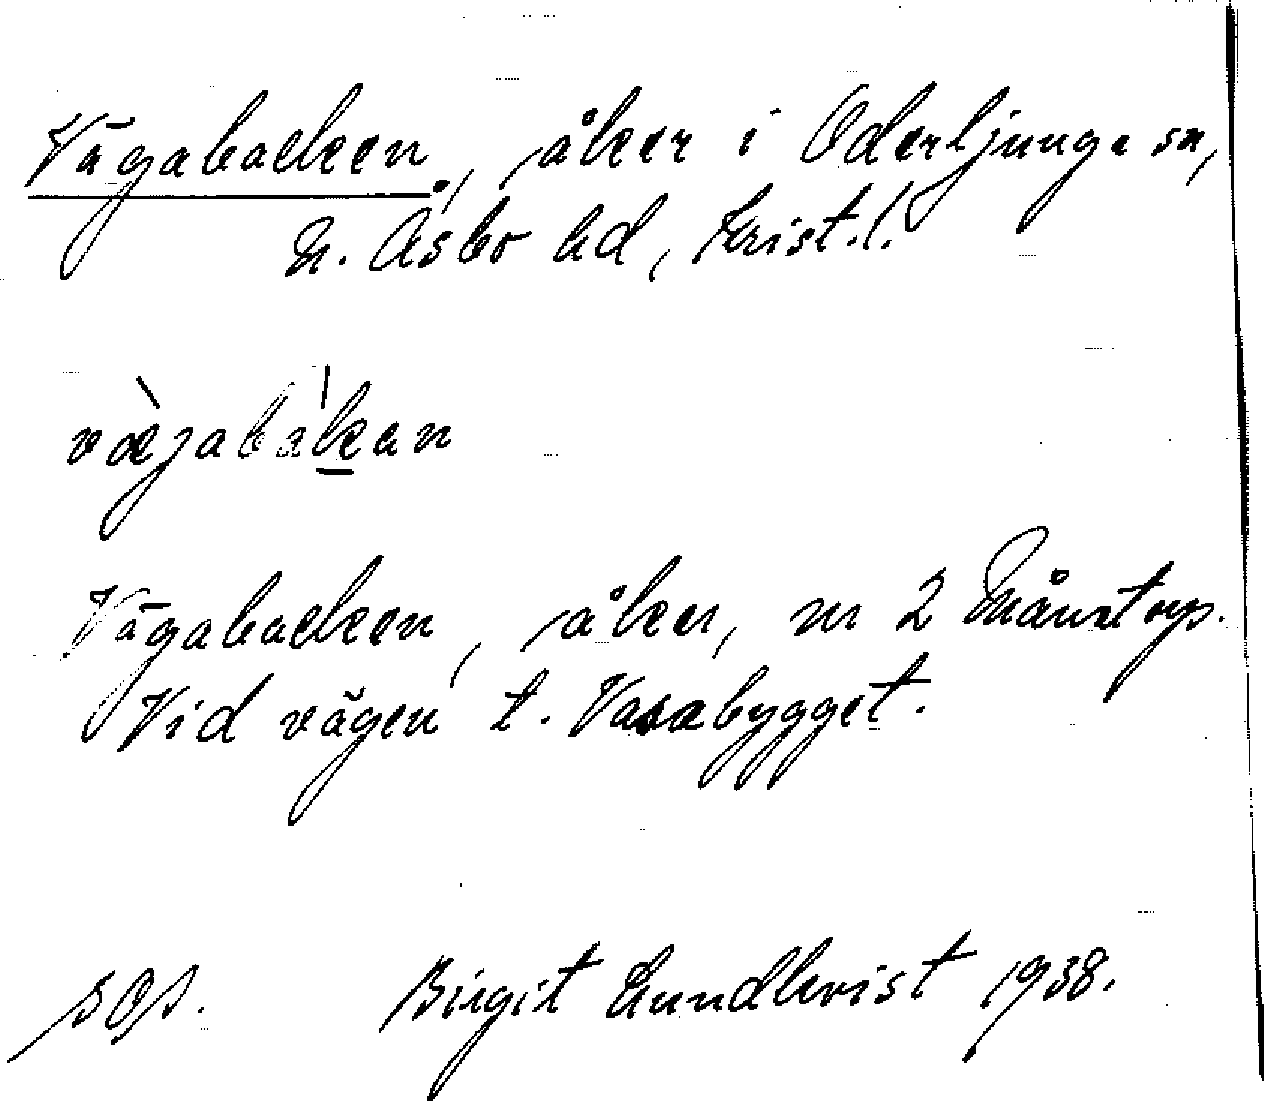 Vägabacken, åker i Oderljunga sn,
N. Åsbo hd, Krist. l.
væ̀gabàkan
Vägabacken, åker, nr 2 Månstorp.
Vid vägen t. Vasabygget.
Birgit Lundkvist 1938.